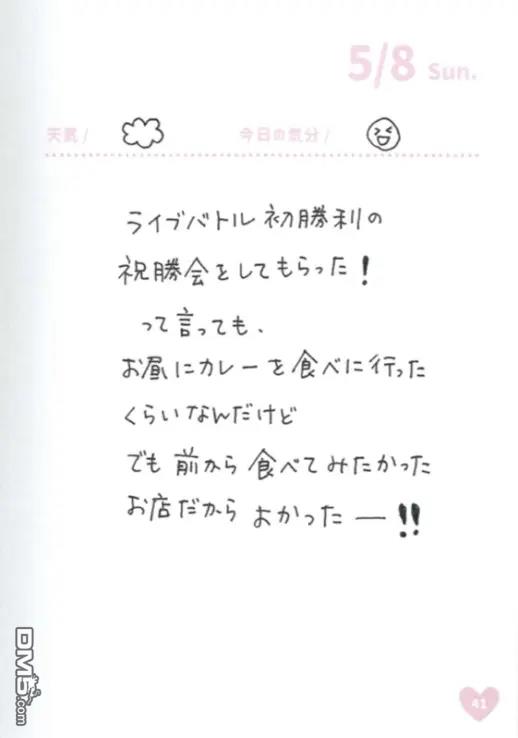 5/8 Sun.
天気 / 今日の気分 /
ライブバトル初勝利の
祝勝会をしてもらった!
って言っても、
お昼にカレーを食べに行った
くらいなんだけど
でも前から食べてみたかった
お店だからよかったー!!
41
DM5.com